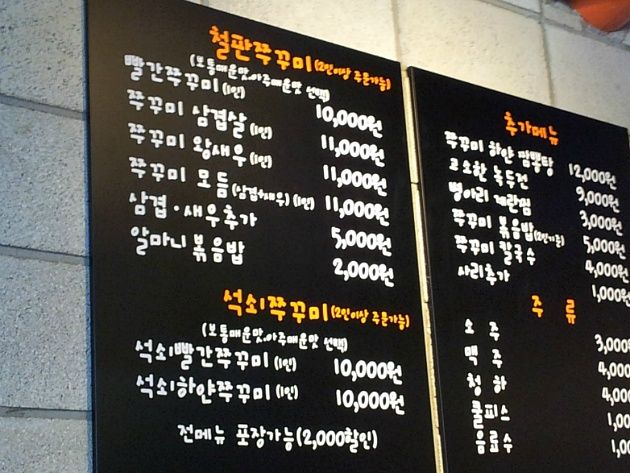 철판쭈꾸미(2인이상 주문가능)
(보통매운맛.아주매운맛 선택)
빨간쭈꾸미(1인) 10,000원
쭈꾸미 삼겹살(1인) 11,000원
쭈꾸미 왕새우(1인) 11,000원
쭈꾸미 모듬(삼겹+새우)(1인) 11,000원
삼겹·새우추가 5,000원
알마니볶음밥 2,000원
석쇠쭈꾸미(2인이상 주문가능)
(보통매운맛.아주매운맛 선택)
석쇠빨간쭈꾸미(1인) 10,000원
석쇠하얀쭈꾸미(1인) 10,000원
전메뉴 포장가능(2,000할인)
추가메뉴
쭈꾸미 하얀 짬뽕탕 12,000원
고소한 녹두전 9,000원
병아리 계란찜 3,000원
쭈꾸미 볶음밥(2인가능) 5,000원
쭈꾸미 칼국수 4,000원
사리추가 1,000원
주 류
소 주 3,000
맥 주 4,000
청 하 4,000
쿨피스 1,00
음료수 1,00